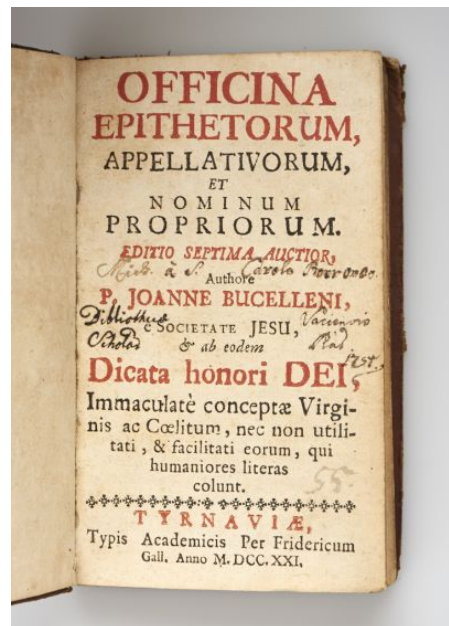 OFFICINA
EPITHETORUM,
APPELLATIVORUM,
ET
NOMINUM
PROPRIORUM.
EDITIO SEPTIMA AUCTIOR,
Mich. à S. Carolo
Authore
P. JOANNE BUCELLENI,
Bibliothecæ
è SOCIETATE JESU,
& ab eodem
Scholar
1754.
Dicata honori DEI,
Immaculatè conceptæ Virgi-
nis ac Cœlitum, nec non utili-
tati, & facilitati eorum, qui
humaniores literas
colunt.
55.
TYRNAVIÆ,
Typis Academicis Per Fridericum
Gall. Anno M. DCC. XXI.